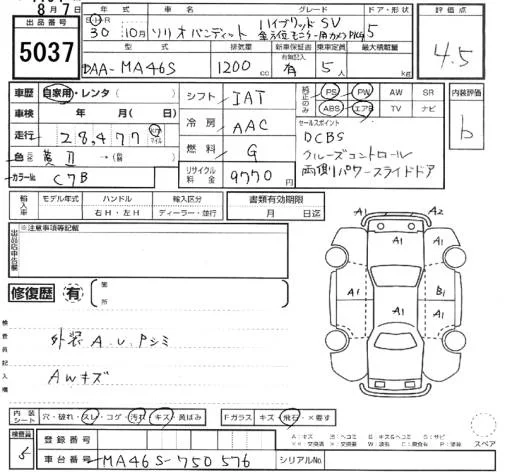 8月7日
年式
グレード
ドア・形状
評価点
出品番号
5037
S・H・R
30年 10月
ソリオバンディット
ハイブリッドSV
全方位モニター用カメラPKG
5
4.5
型式
排気量
新車保証書
乗車定員
最大積載量
有無記入
DAA-MA46S
1200cc
有
5人
kg
車歴
自家用・レンタ( )
シフト
IAT
純正のみ
PS
PW
AW
SR
内装評価
車検
年 月( 日)
ABS
エアB
TV
ナビ
b
走行
28,477
km
マイル
冷房
AAC
セールスポイント
DCBS
クルーズコントロール
両側パワースライドドア
色
黄II
燃料
G
カラーNo.
C7B
リサイクル料金
9770円
輸入車
モデル年式
ハンドル
輸入区分
書類有効期限
年
右H・左H
ディーラー・並行
月 日迄
出品店申告欄
※注意事項等記載
A1
A2
A1
修復歴
有
箇所
A1
A1
B1
A1
検査員記入欄
外装 A.U.Pシミ
AWキズ
A1
内装シート
穴・破れ・スレ・コゲ・汚れ・キズ・黄ばみ
Fガラス
キズ・飛石・×要す
A:キズ
U:ヘコミ
B:キズ&ヘコミ
S:サビ
スペア
検査員
登録番号
車台番号
MA46S-750576
シリアルNo.